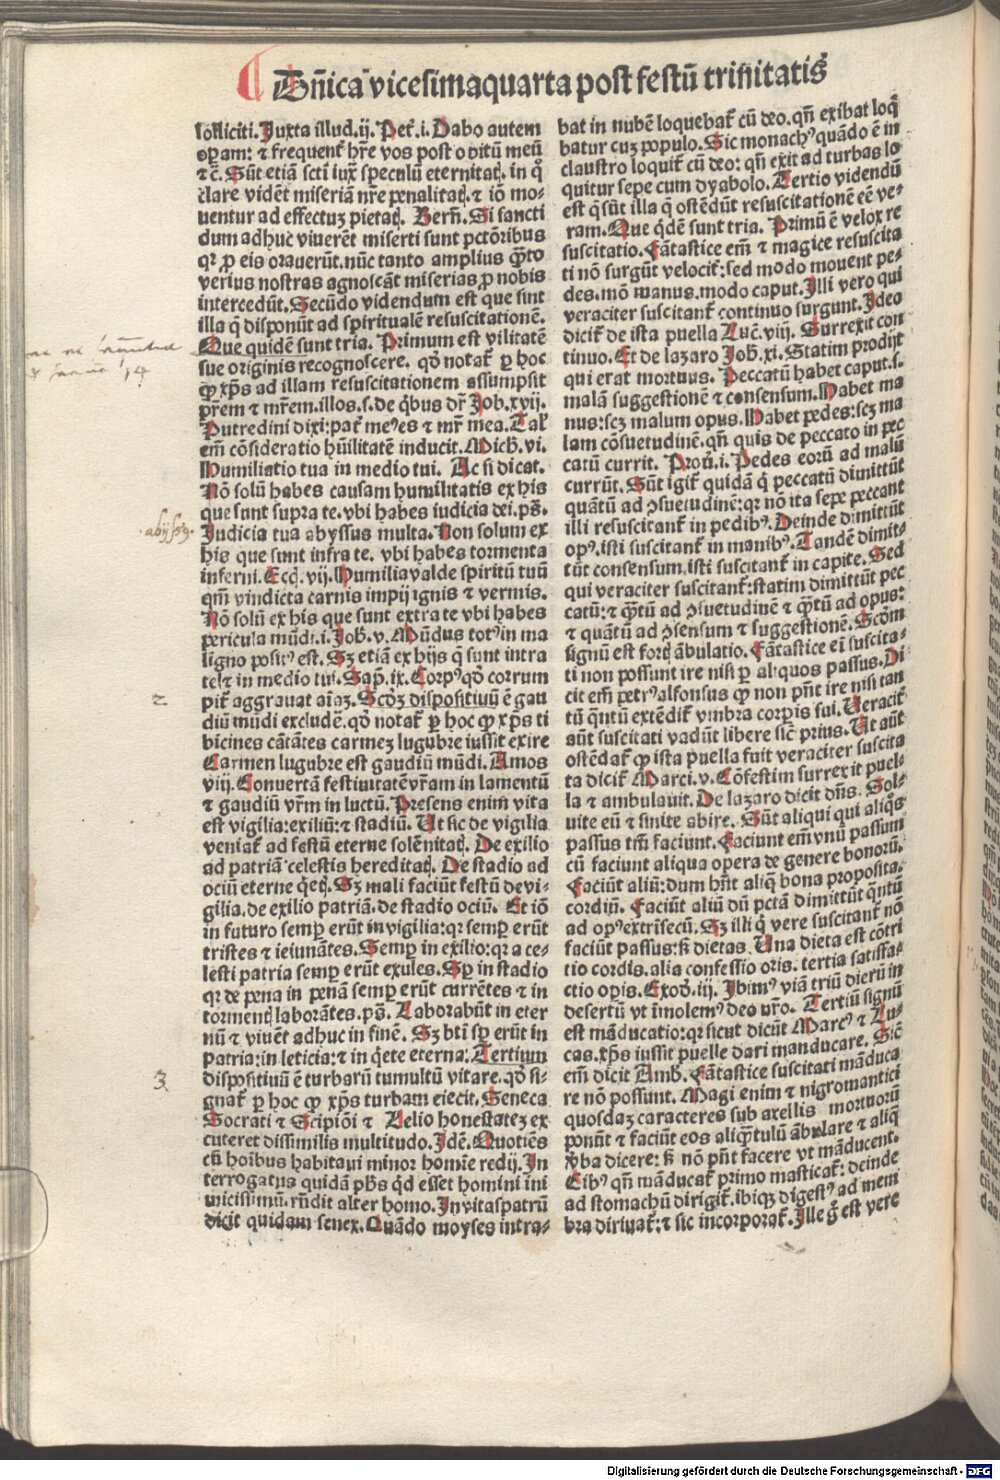 Dn̄ica vicesimaquarta post festū trinitatis
solliciti. Juxta illud. ij. Pet̄. i. Dabo autem
oꝑam: ⁊ frequent̄ hr̄e vos post obitū meū
⁊ c̄. Sūt etiā sc̄ti iux̄ speculū eternitat̄. in q̊
clare vidēt miseriā nr̄e penalitat̄. ⁊ iō mo⸗
uentur ad effectuꝫ pietat̄. Bern̄. Si sancti
dum adhuc viuerēt miserti sunt pctōribus
qꝛ ꝓ eis orauerūt. nūc tanto amplius q̄ꝫto
verius nostras agnoscāt miserias ꝓ nobis
intercedūt. Secūdo videndum est que sunt
illa q̄ disponūt ad spiritualē resuscitationē.
Que quidē sunt tria. Primum est vilitatē
sue originis recognoscere. qḋ notat̄ ꝑ hoc
ꝙ xp̄s ad illam resuscitationem assumpsit
pr̄em ⁊ mr̄em. illos. s. de q̇bus dr̄ Job. xvij.
Putredini dixi: pat̄ me⁹es ⁊ mr̄ mea. Tal̄
em̄ cōsideratio hūilitatē inducit. Mich. vi.
Humiliatio tua in medio tui. Ac si dicat.
Nō solū habes causam humilitatis ex his
que sunt supra te. vbi habes iudicia dei. ps̄.
Judicia tua abyssus multa. Non solum ex
his que sunt infra te. vbi habes tormenta
inferni. Eccī. vij. Humilia valde spiritū tuū
qm̄ vindicta carnis impij ignis ⁊ vermis.
Nō solū ex his que sunt extra te vbi habes
pericula mūdi. i. Joh̄. v. Mūdus tot⁹ in ma
ligno posit⁹ est. Sꝫ etiā ex hijs q̄ sunt intra
te: ⁊ in medio tui. Sap̄. ix. Corp⁹ qḋ corrum
pit̄ aggrauat aīaꝫ. Scḋꝫ dispositiuū ē gau
diū mūdi excludē. qḋ notat̄ ꝑ hoc ꝙ xp̄s ti
bicines cātātes carmeꝫ lugubre iussit exire
Carmen lugubre est gaudiū mūdi. Amos
viij. Conuertā festiuitatē vr̄am in lamentū
⁊ gaudiū vr̄m in luctū. Presens enim vita
est vigilia: exiliū: ⁊ stadiū. Ut sic de vigilia
veniat̄ ad festū eterne solēnitat̄. De exilio
ad patriā celestis hereditat̄. De stadio ad
ociū eterne q̇et̄. Sꝫ mali faciūt festū de vi⸗
gilia. de exilio patriā. de stadio ociū. Et iō
in futuro semꝑ erūt in vigilia: qꝛ semꝑ erūt
tristes ⁊ ieiunātes. Semꝑ in exilio: qꝛ a ce⸗
lesti patria semꝑ erūt exules. Sꝑ in stadio
qꝛ de pena in penā semꝑ erūt currētes ⁊ in
torment̄ laborātes. ps̄. Laborabūt in eter
nū ⁊ viuēt adhuc in finē. Sꝫ bt̄i sꝑ erūt in
patria: in leticia: ⁊ in q̇ete eterna: Tertium
dispositiuū ē turbarū tumultū vitare. qḋ si⸗
gnat̄ ꝑ hoc ꝙ xp̄s turbam eiecit. Seneca
Socrati ⁊ Scipiōi ⁊ Lelio honestateꝫ ex
cuteret dissimilis multitudo. Idē. Quotiēs
cū hoībus habitaui minor homīe redij. In
terrogatus quidā pb̄s q̇d esset homini ini
micissimū. rn̄dit alter homo. In vitaspatrū
dicit quidam senex. Quādo moyses intra⸗
bat in nubē loquebat̄ cū deo. qn̄ exibat loq̄
batur cuꝫ populo. Sic monach⁹ quādo ē in
claustro loquit̄ cū deo: qn̄ exit ad turbas lo
quitur sepe cum dyabolo. Tertio videndū
est q̄ sūt illa q̄ ostēdūt resuscitationē eē ve⸗
ram. Que q̇dē sunt tria. Primū ē velox re
suscitatio. Fātastice em̄ ⁊ magice resuscita
ti nō surgūt velocit̄: sed modo mouent pe⸗
des. mō manus. modo caput. Illi vero qui
veraciter suscitant̄ continuo surgunt. Ideo
dicit̄ de ista puella Luc̄. viij. Surrexit con
tinuo. Et de lazaro Joh̄. xi. Statim prodijt
qui erat mortuus. Peccatū habet caput. s.
malā suggestionē ⁊ consensum. Habet ma
nus: scꝫ malum opus. Habet pedes: scꝫ ma
lam cōsuetudinē. qn̄ quis de peccato in pec
catū currit. Prou̇. i. Pedes eorū ad malū
currūt. Sūt igit̄ quidā q̇ peccatū dimittūt
quātū ad ꝯsuetudinē: qꝛ nō ita sepe peccant
illi resuscitant̄ in pedib⁹. Deinde dimittūt
op⁹. isti suscitant̄ in manib⁹. Tandē dimit⸗
tūt consensum. isti suscitant̄ in capite. Sed
qui veraciter suscitant̄: statim dimittūt pec
catū: ⁊ q̄ꝫtū ad ꝯsuetudinē ⁊ q̄ꝫtū ad opus:
⁊ quātū ad ꝯsensum ⁊ suggestionē. Scḋm
signū est fort̄ ābulatio. Fātastice eī suscita⸗
ti non possunt ire nisi ꝑ aliquos passus. Di⸗
cit em̄ petr⁹ alfonsus ꝙ non pn̄t ire nisi tan
tū q̄ntū extēdit̄ vmbra corꝑis sui. Veracit̄
aūt suscitati vadūt libere sic̄ prius. Ut aūt
ostēdat̄ ꝙ ista puella fuit veraciter suscita
ta dicit̄ Marci. v. Cōfestim surrexit puel⸗
la ⁊ ambulauit. De lazaro dicit dn̄s. Sol⸗
uite eū ⁊ sinite abire. Sūt aliqui qui aliq̊s
passus tm̄ faciunt. Faciunt em̄ vnū passum
cū faciunt aliqua opera de genere bonorū.
Faciūt aliū: dum hn̄t aliq̄ bona proposita.
cordiū. Faciūt aliū dū pctā dimittūt q̄ntū
ad op⁹ extrisecū. Sꝫ illi q̇ vere suscitant̄ nō
faciūt passus: ß dietas. Una dieta est cōtri
tio cordis. alia confessio oris. tertia satisfa⸗
ctio oꝑis. Exod. iij. Ibim⁹ viā triū dierū in
desertū vt īmolem⁹ deo nr̄o. Tertiū signū
est māducatio: qꝛ sicut dicūt Marc⁹ ⁊ Lu⸗
cas. xp̄s iussit puelle dari manducare. Sic̄
em̄ dicit Amb. Fātastice suscitati māduca
re nō possunt. Magi enim ⁊ nigromantici
quosdaꝫ caracteres sub axellis mortuorū
ponūt ⁊ faciūt eos aliq̄ꝫtulū ābulare ⁊ aliq̄
v̄ba dicere: ß nō pn̄t facere vt māducent.
Cib⁹ qn̄ māducat̄ primo masticat̄: deinde
ad stomachū dirigit̄. ibiqꝫ digest⁹ ad mem
bra diriuat̄: ⁊ sic incorporat̄. Ille g̊ est vere
abyss⁹.
2
3
Digitalisierung gefördert durch die Deutsche Forschungsgemeinschaft - DFG